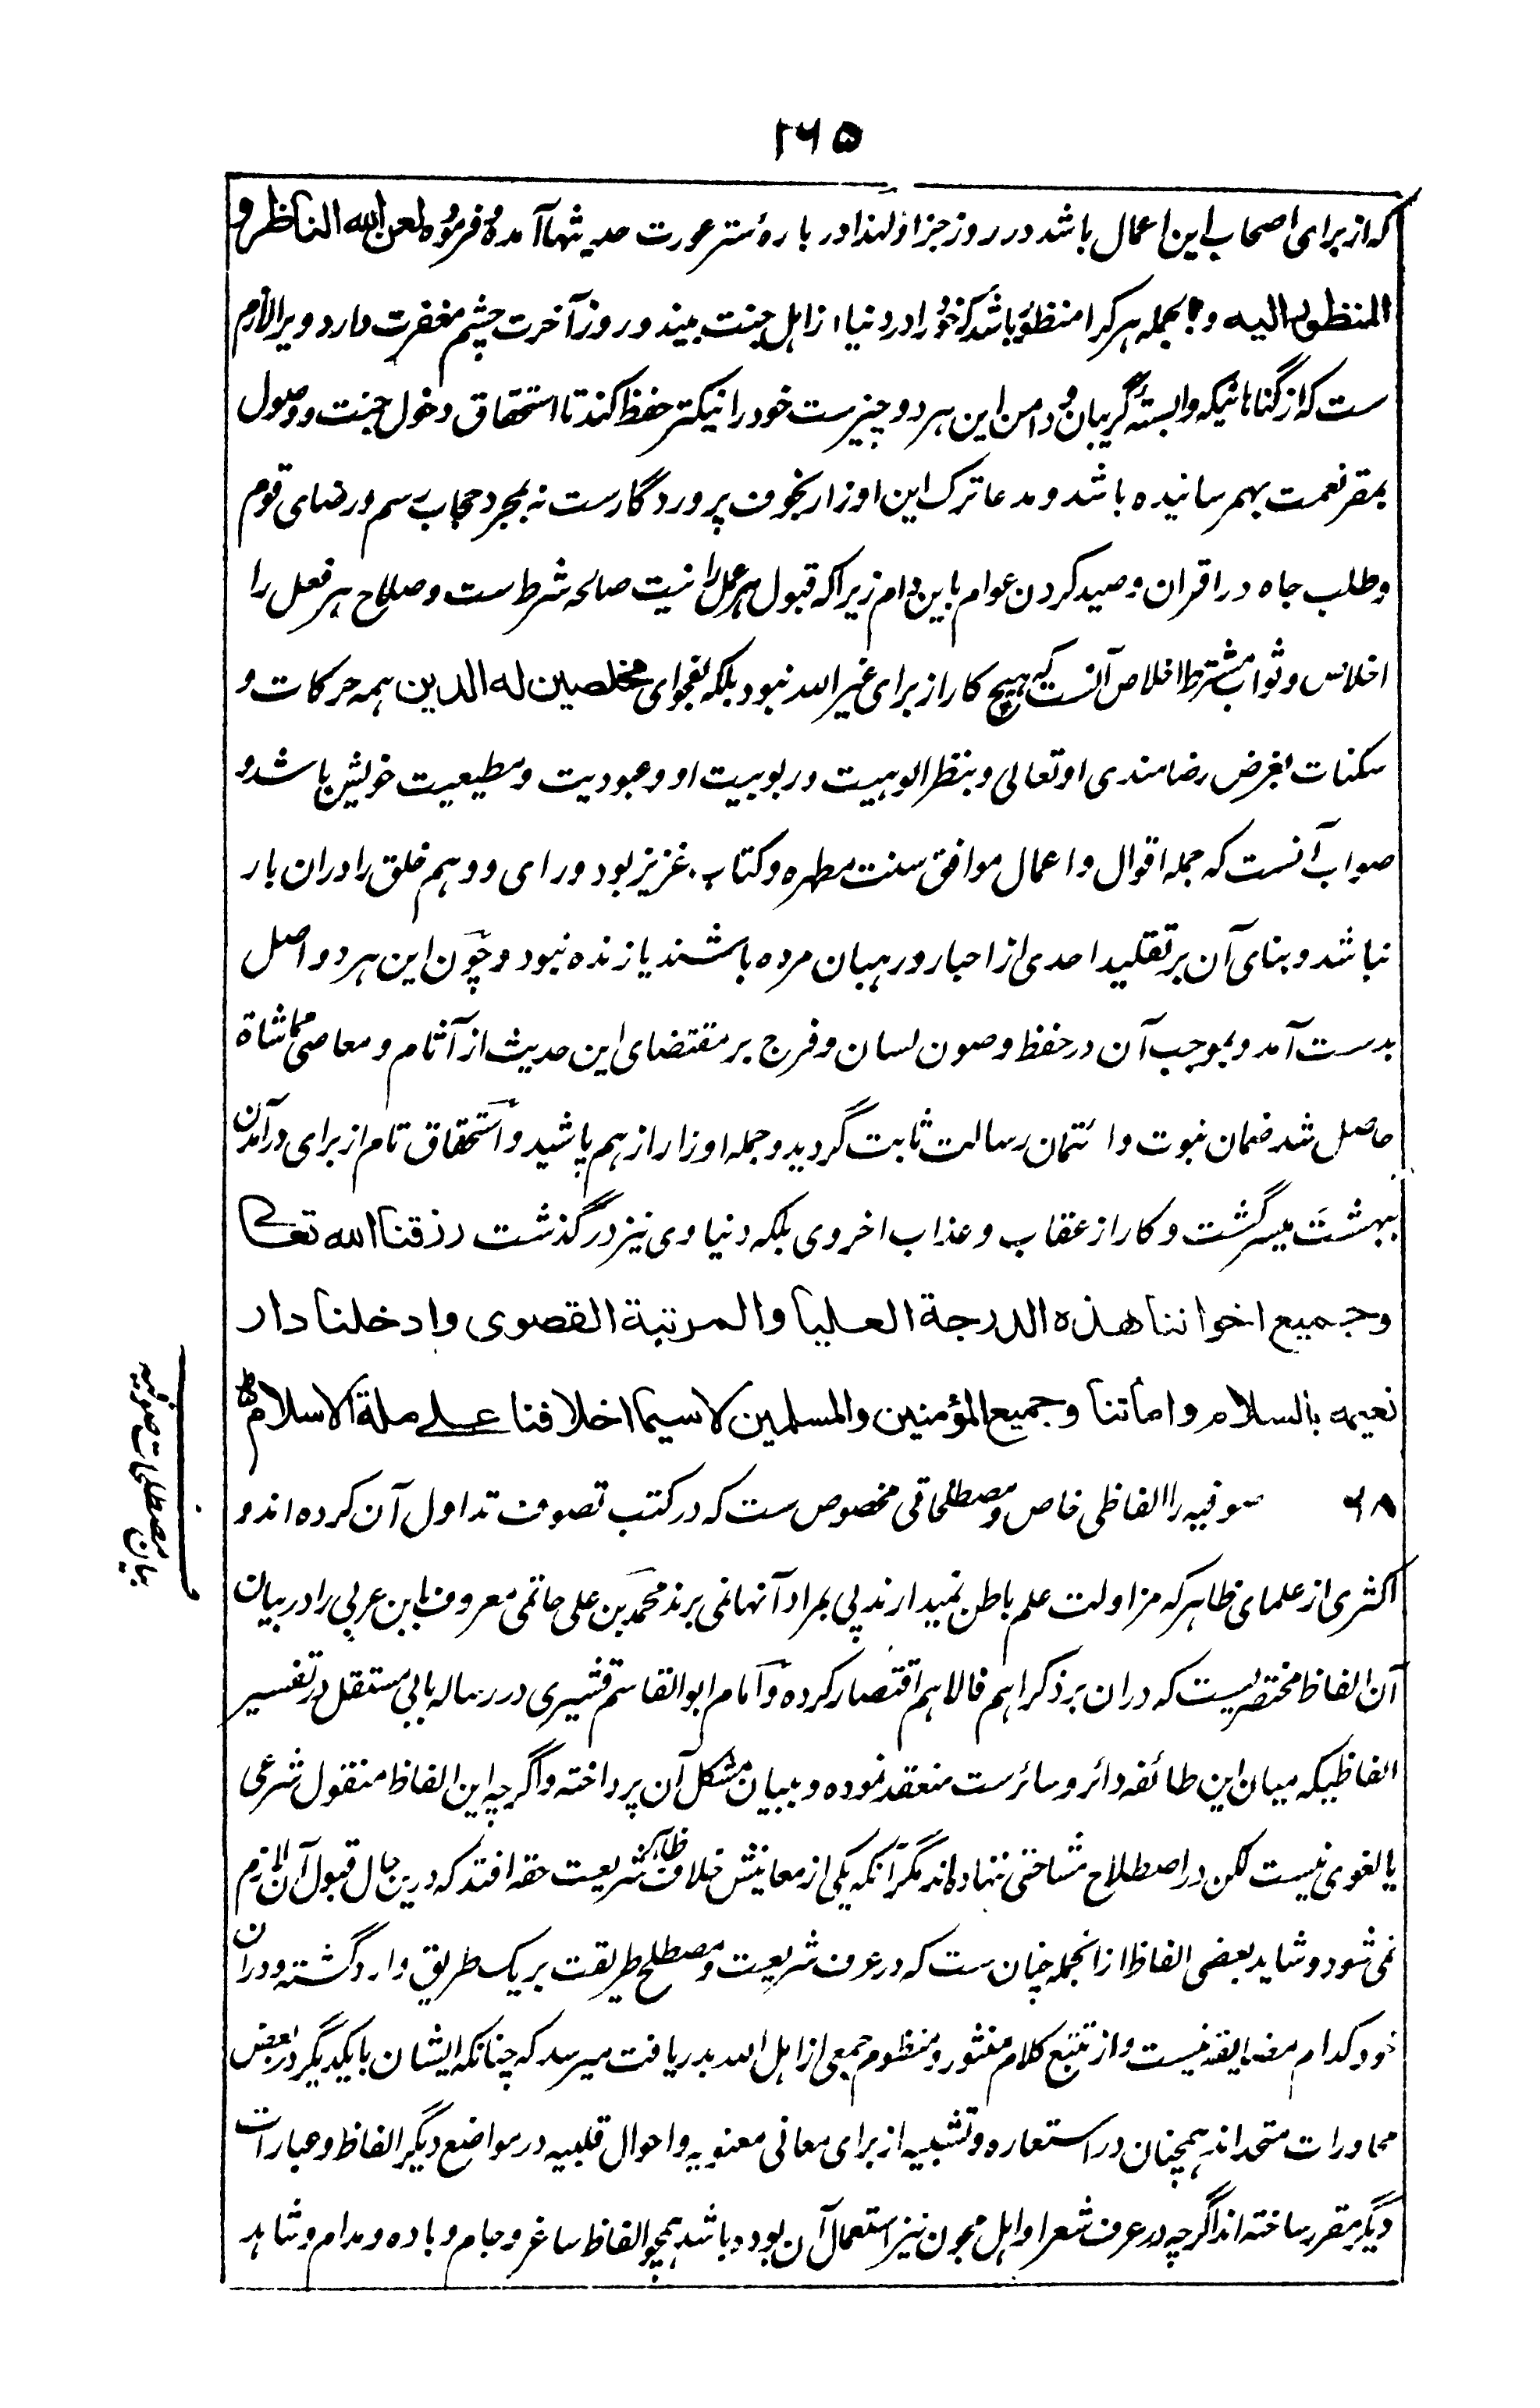 ۲۶۵
که از برای اصحاب این اعمال باشد در روز جزا و لهذا در باره ستر عورت حدیثها آمده و فرموده لعن الله الناظر و
المنظور الیه و بالجمله هر کرا منظور باشد که خود را در دنیا از اهل جنت بیند و روز آخرت چشم مغفرت دارد ویرا لازم
ست که از گناهانیکه وابستهٔ گریبان و دامن این هر دو چیزست خود را نیکتر حفظ کند تا استحقاق دخول جنت و وصول
بمقر نعمت بهم رسانیده باشد و مدعا ترک این اوزار بخوف پروردگارست نه بمجرد حجاب رسم و رضای قوم
و طلب جاه در اقران و صید کردن عوام باین دام زیرا که قبول هر عمل را نیت صالحه شرط ست و صلاح هر فعل را
اخلاص و ثواب مشترط اخلاص آنست که هیچ کار از برای غیر الله نبود بلکه بفحوای مخلصین له الدین همه حرکات و
سکنات بغرض رضامندی او تعالی و بنظر الوهیت و ربوبیت او و عبودیت و مطیعیت خویش باشد و
صواب آنست که جمله اقوال و اعمال موافق سنت مطهره و کتاب عزیز بود و رای و وهم خلق را دران بار
نباشد و بنای آن بر تقلید احدی از احبار و رهبان مرده باشند یا زنده نبود و چون این هر دو اصل
بدست آمد و بموجب آن در حفظ و صون لسان و فرج بر مقتضای این حدیث از آثام و معاصی مماشاة
حاصل شد ضمان نبوت و ائتمان رسالت ثابت گردید و جمله اوزار از هم پاشید و استحقاق تام از برای درآمدن
ببهشت میسر گشت و کار از عقاب و عذاب اخروی بلکه دنیاوی نیز در گذشت رزقنا الله تعالی
وجمیع اخواننا هذه الدرجة العلیا والمرتبة القصوی وادخلنا دار
نعیمه بالسلام واماتنا وجمیع المؤمنین والمسلمین لاسیما اخلافنا علی ملة الاسلام
۶۸ صوفیه را الفاظی خاص و مصطلحاتی مخصوص ست که در کتب تصوف تداول آن کرده اند و
اکثری از علمای ظاهر که مزاولت علم باطن نمیدارند پی بمراد آنها نمی برند محمد بن علی حاتمی معروف بابن عربی را در بیان
آن الفاظ مختصریست که دران بر ذکر اهم فالاهم اقتصار کرده و امام ابو القاسم قشیری در رساله بابی مستقل در تفسیر
الفاظیکه میان این طائفه دائر و سائرست منعقد نموده و ببیان مشکل آن پرداخته و اگرچه این الفاظ منقول شرعی
یا لغوی نیست لکن در اصطلاح مشاختی ننهاده اند مگر آنکه یکی از معانیش خلاف ظاهر شریعت حقه افتد که درین حال قبول آن لازم
نمی شود و شاید بعضی الفاظ از انجمله چنان ست که در عرف شریعت و مصطلح طریقت بر یک طریق وارد گشته و دران
خود کدام مضایقه نیست و از تتبع کلام منثور و منظوم جمعی از اهل الله بدریافت میرسد که چنانکه ایشان با یکدیگر در بعض
محاورات متحد اند همچنان در استعاره و تشبیه از برای معانی معنویه و احوال قلبیه در مواضع دیگر الفاظ و عبارات
دیگر مقرر ساخته اند اگرچه در عرف شعرا و اهل مجون نیز استعمال آن بوده باشد همچو الفاظ ساغر و جام و باده و مدام و شاهد
بیان مصطلحات صوفیه